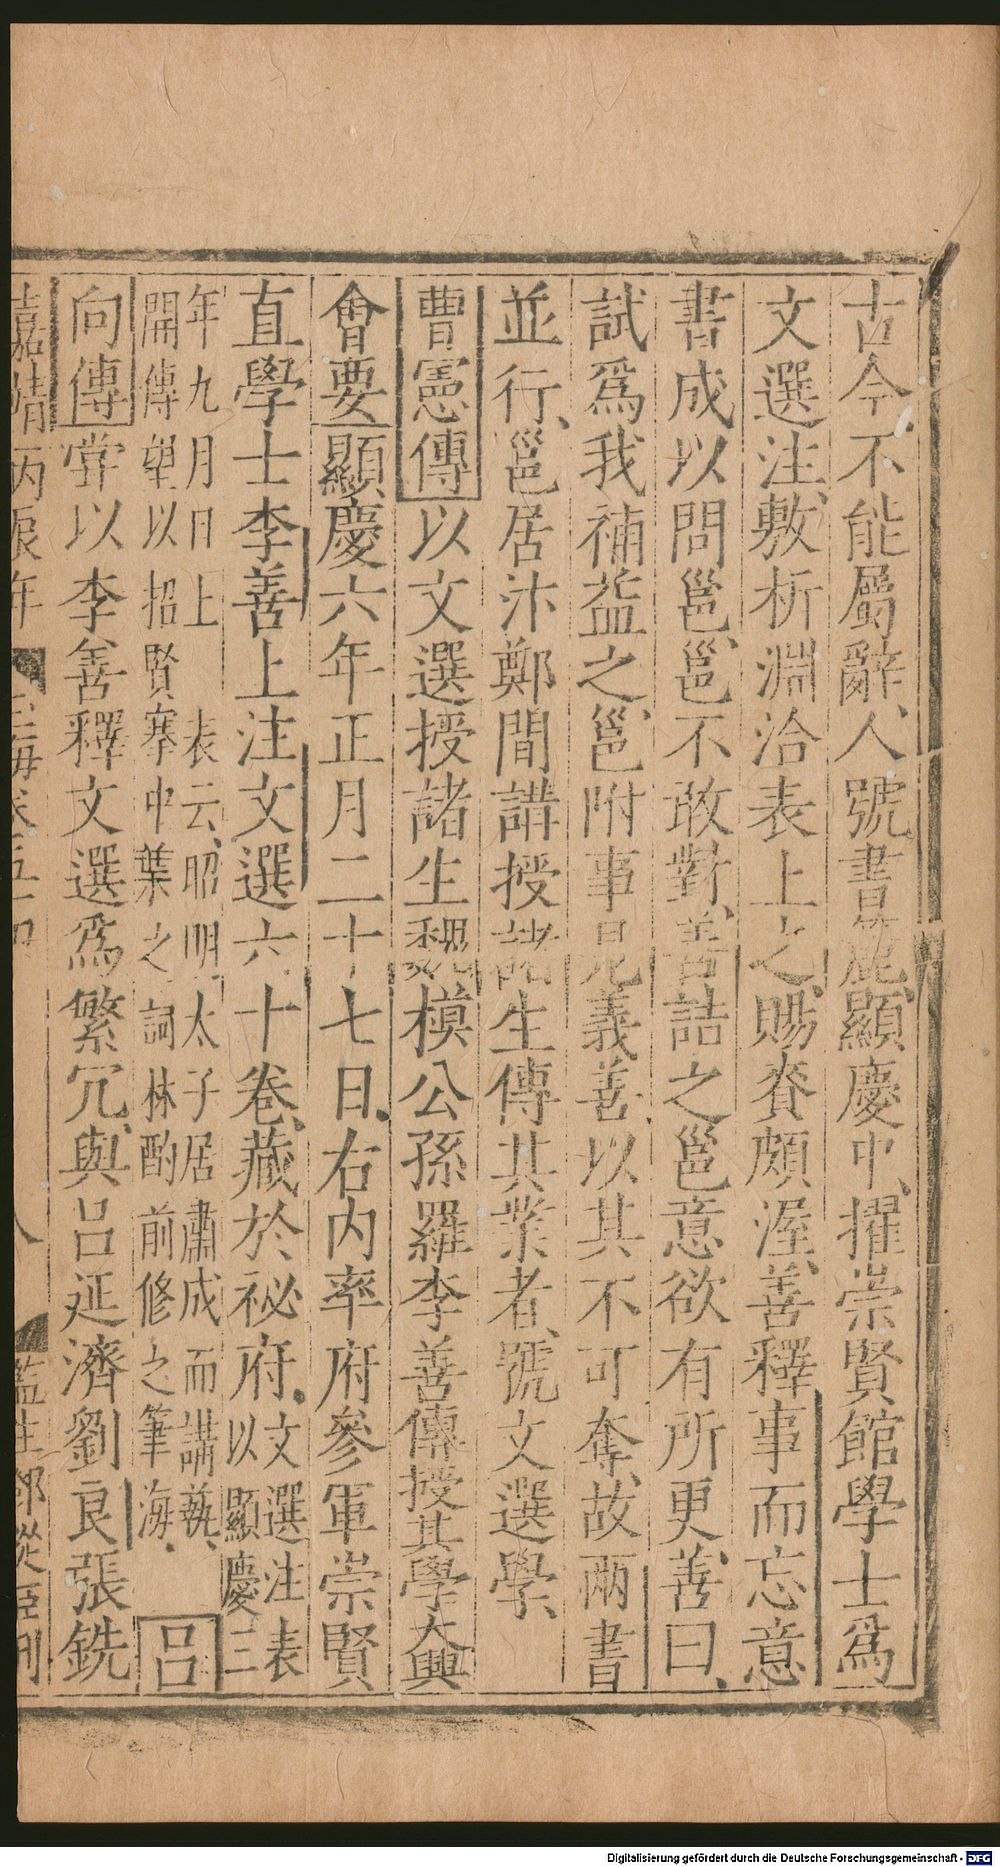 古今不能屬辭人號書簏顯慶中擢崇賢館學士爲
文選注敷析淵洽表上之賜賚頗渥善釋事而忘意
書成以問邕邕不敢對善詰之邕意欲有所更善曰
試爲我補益之邕附事見義善以其不可奪故兩書
並行邕居汴鄭間講授諸生傳其業者號文選學
曹憲傳以文選授諸生魏模公孫羅李善傳授其學大興
會要顯慶六年正月二十七日右内率府參軍崇賢
直學士李善上注文選六十卷藏於祕府文選注表
以顯慶三
年九月日上表云昭明太子居肅成而講藝
開傳望以招賢搴中葉之詞林酌前修之筆海呂
向傳甞以李善釋文選爲繁冗與呂延濟劉良張銑
嘉靖丙辰年 玉海卷五十四 八 監生鄧從臣刊
Digitalisierung gefördert durch die Deutsche Forschungsgemeinschaft - DFG